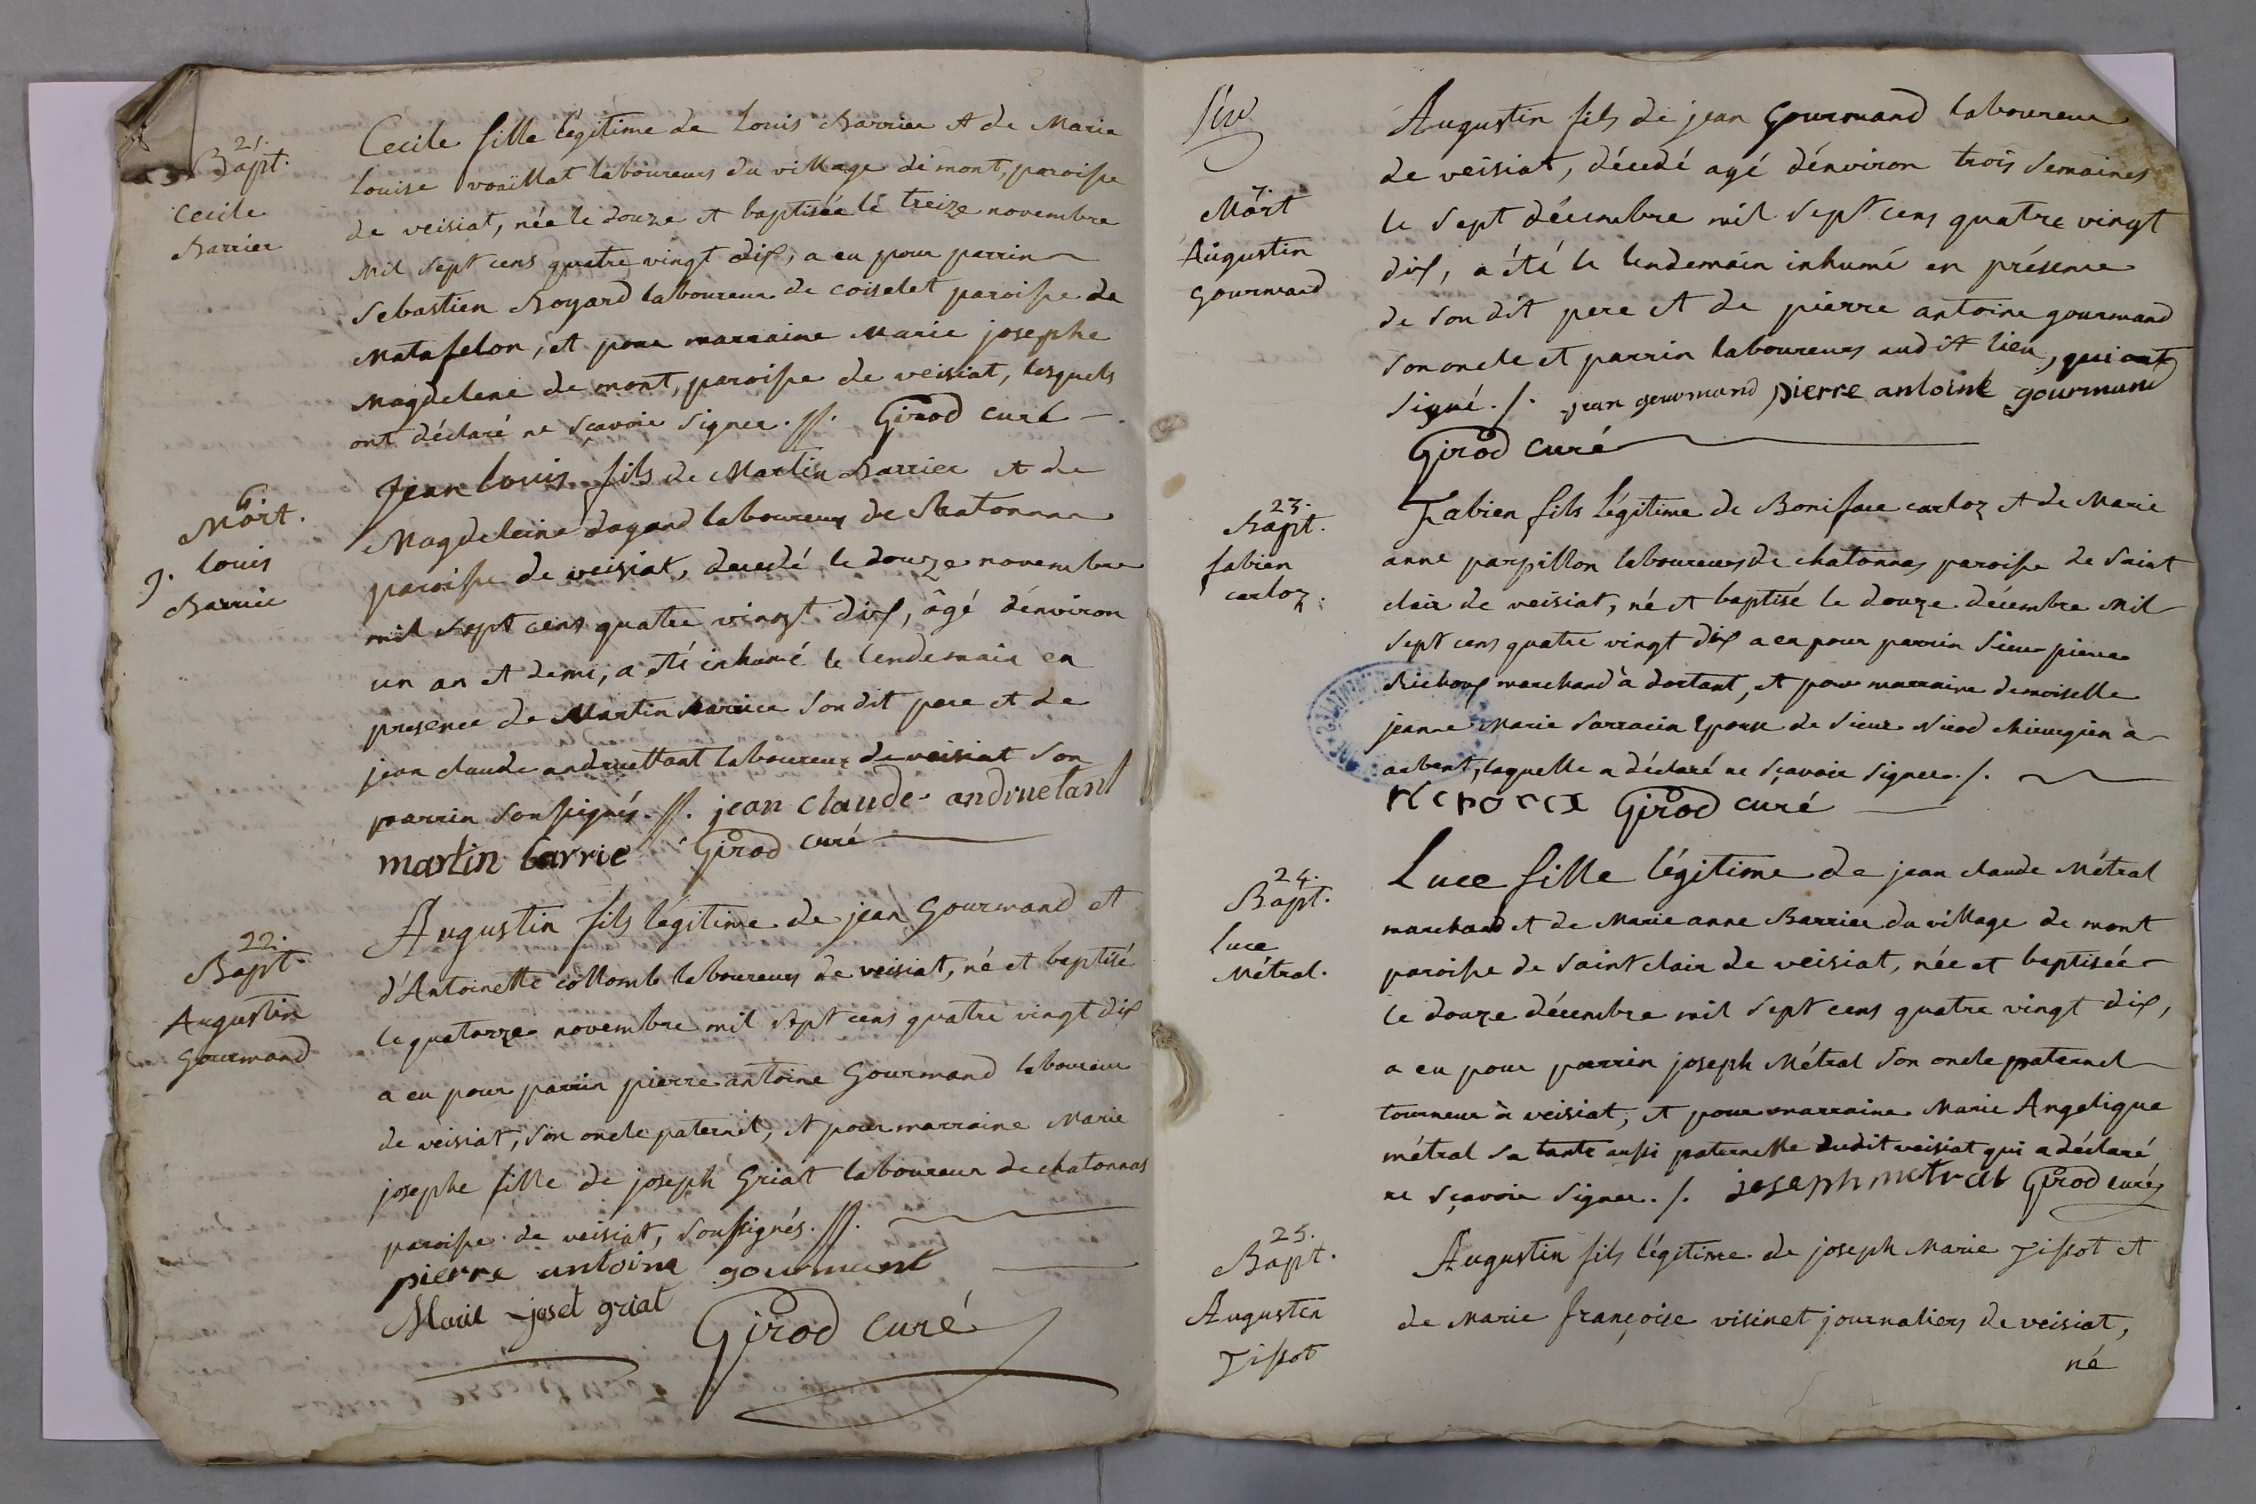 21.
Bapt.
Cecile
Barrier
Cecile fille légitime de Louis Barrier et de Marie
Louise vouillat laboureurs du village de mont, paroisse
de veisiat, née le douze et baptisée le treize novembre
mil sept cens quatre vingt dix, a eu pour parrin
Sebastien Royard laboureur de coiselet paroisse de
Matafelon, et pour marraine Marie josephe
Magdelene de mont, paroisse de veisiat, lesquels
ont déclaré ne sçavoir signer. //. Girod curé
6.
Mort.
j. louis
Barrier
Jean louis fils de Martin Barrier et de
Magdeleine dagand laboureurs de Chatonnas
paroisse de veisiat, decedé le douze novembre
mil sept cens quatre vingt dix, âgé d'environ
un an et demi, a été inhumé le lendemain en
presence de Martin Barrier son dit pere et de
jean claude andruettant laboureur de veisiat son
parrin soussignés. //. jean claude andruetant
martin barrie Girod curé
22.
Bapt.
Augustin
Gourmand
Augustin fils légitime de jean Gourmand et
d'Antoinette collomb laboureurs de veisiat, né et baptisé
le quatorze novembre mil sept cens quatre vingt dix
a eu pour parrin pierre antoine Gourmand laboureur
de veisiat, son oncle paternel, et pour marraine Marie
josephe fille de joseph Griat laboureur de chatonnas
paroisse de veisiat, soussignés. //.
pierre antoine gourmant
Marie joset griat
Girod curé
7.
Mort
Augustin
Gourmand
Augustin fils de jean Gourmand laboureur
de veisiat, décedé agé d'environ trois semaines
le sept décembre mil sept cens quatre vingt
dix, a été le lendemain inhumé en présence
de son dit pere et de pierre antoine gourmand
son oncle et parrin laboureurs audit lieu, qui ont
signé. /. jean gourmand pierre antoine gourmand
Girod curé
23.
Bapt.
fabien
carloz.
Fabien fils légitime de Boniface carloz et de Marie
anne parpillon laboureurs de chatonnas paroisse de Saint
clair de veisiat, né et baptisé le douze décembre mil
sept cens quatre vingt dix a eu pour parrin Sieur pierre
marchand à dortant, et pour marraine demoiselle
jeanne Marie Sarracin Epouse de Sieur Nicod chirurgien à
arbent, laquelle a déclaré ne sçavoir signer. /.
Girod curé
24.
Bapt.
luce
Métral.
Luce fille légitime de jean claude Métral
marchand et de Marie anne Barrier du village de mont
paroisse de saint clair de veisiat, née et baptisée
le douze décembre mil sept cens quatre vingt dix,
a eu pour parrin joseph Métral son oncle paternel
tourneur à veisiat, et pour marraine Marie Angelique
métral sa tante aussi paternelle dudit veisiat qui a déclaré
ne sçavoir signer. /. joseph metral Girod curé
25.
Bapt.
Augustin
Tissot
Augustin fils légitime de joseph Marie Tissot et
de Marie françoise visinet journaliers de veisiat,
né